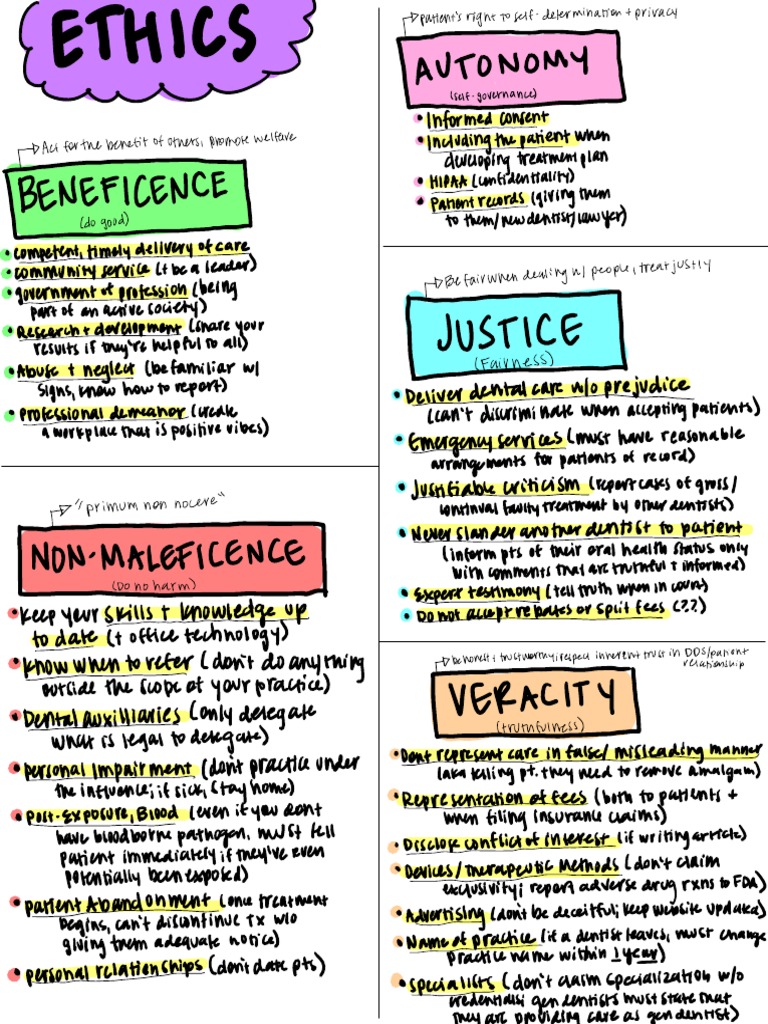 ETHICS
Act for the benefit of others; promote welfare
BENEFICENCE
(do good)
• competent, timely delivery of care
• community service (+ be a leader)
• government of profession (being
part of an active society)
• Research + development (share your
results if they're helpful to all)
• Abuse + neglect (be familiar w/
signs, know how to report)
• professional demeanor (create
a workplace that is positive vibes)
"primum non nocere"
NON-MALEFICENCE
(Do no harm)
• keep your skills + knowledge up
to date (+ office technology)
• know when to refer (don't do anything
outside the scope of your practice)
• Dental auxilliaries (only delegate
what is legal to delegate)
• personal impairment (don't practice under
the influence; if sick, stay home)
• post-Exposure, Blood (even if you don't
have bloodborne pathogen, must tell
patient immediately if they've even
potentially been exposed)
• patient Abandonment (once treatment
begins, can't discontinue tx w/o
giving them adequate notice)
• personal relationships (don't date pts)
patient's right to self-determination + privacy
AUTONOMY
(self-governance)
• Informed consent
• Including the patient when
developing treatment plan
• HIPAA (confidentiality)
• Patient records (giving them
to them/new dentist/lawyer)
Be fair when dealing w/ people, treat justly
JUSTICE
(Fairness)
• Deliver dental care w/o prejudice
(can't discriminate when accepting patients)
• Emergency services (must have reasonable
arrangements for patients of record)
• Justifiable criticism (report cases of gross/
continual faulty treatment by other dentists)
• Never slander another dentist to patient
(inform pts of their oral health status only
with comments that are truthful + informed)
• Expert testimony (tell truth when in court)
• Do not accept rebates or split fees (??)
be honest + trustworthy; respect inherent trust in DDS/patient
relationship
VERACITY
(truthfulness)
• Dont represent care in false/misleading manner
(aka telling pt. they need to remove amalgam)
• Representation of fees (both to patients +
when filing insurance claims)
• Disclose conflict of interest (if writing article)
• Devices/Therapeutic Methods (don't claim
exclusivity; report adverse drug rxns to FDA)
• Advertising (don't be deceitful; keep website updated)
• Name of practice (if a dentist leaves, must change
practice name within 1 year)
• specialists (don't claim specialization w/o
credentials; gen dentists must state that
they are providing care as gen dentist)